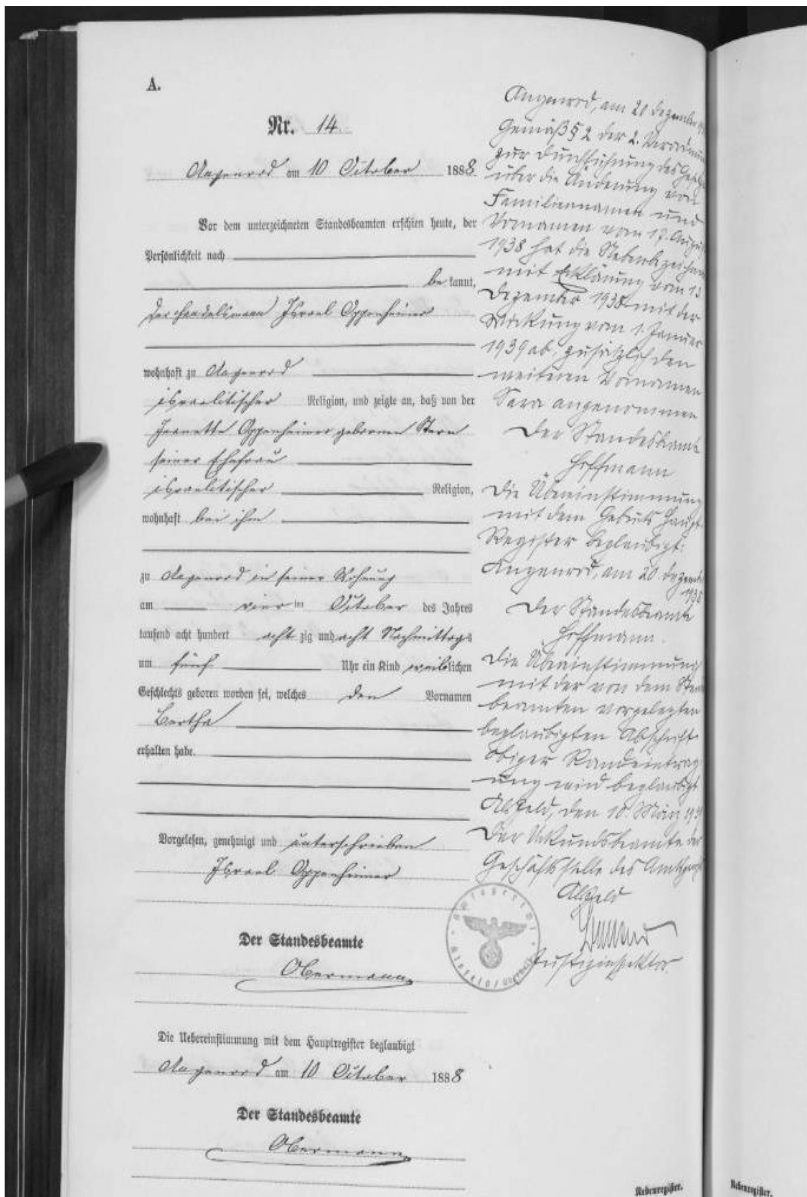 A.
Nr. 14
Angenrod am 10 October 1888
Vor dem unterzeichneten Standesbeamten erschien heute, der
Persönlichkeit nach
be kannt,
der Handelsmann Israel Oppenheimer
wohnhaft zu Angenrod
israelitischer Religion, und zeigte an, daß von der
Jeanette Oppenheimer gebornen Stern
seiner Ehefrau
israelitischer Religion,
wohnhaft bei ihm
zu Angenrod in seiner Wohnung
am vier ten October des Jahres
tausend acht hundert acht zig und acht Nachmittags
um fünf Uhr ein Kind weiblichen
Geschlechts geboren worden sei, welches den Vornamen
Bertha
erhalten habe.
Vorgelesen, genehmigt und unterschrieben
Israel Oppenheimer
Der Standesbeamte
Obermann
Die Uebereinstimmung mit dem Hauptregister beglaubigt
Angenrod am 10 October 1888
Der Standesbeamte
Obermann
Angenrod, am 20 Dezember
Gemäß § 2 der 2. Verordnung
zur Durchführung des Gesetzes
über die Änderung von
Familiennamen und
Vornamen vom 17. August
1938 hat die Nebenbezeichnete
mit Erklärung vom 13
Dezember 1938 mit der
Wirkung vom 1. Januar
1939 ab, zusätzlich den
weiteren Vornamen
Sara angenommen
Der Standesbeamte
Hoffmann
Die Übereinstimmung
mit dem Geburts Haupt
Register beglaubigt:
Angenrod, am 20 Dezember
1938
Der Standesbeamte
Hoffmann.
Die Übereinstimmung
mit der von dem Standes
beamten vorgelegten
beglaubigten Abschrift
obiger Randeintrag
ung wird beglaubigt
Alsfeld, den 10. März 1939
Der Urkundsbeamte der
Geschäftsstelle des Amtsgerichts
Alsfeld
Justizinspektor
Amtsgericht
Nebenregister.
Nebenregister.